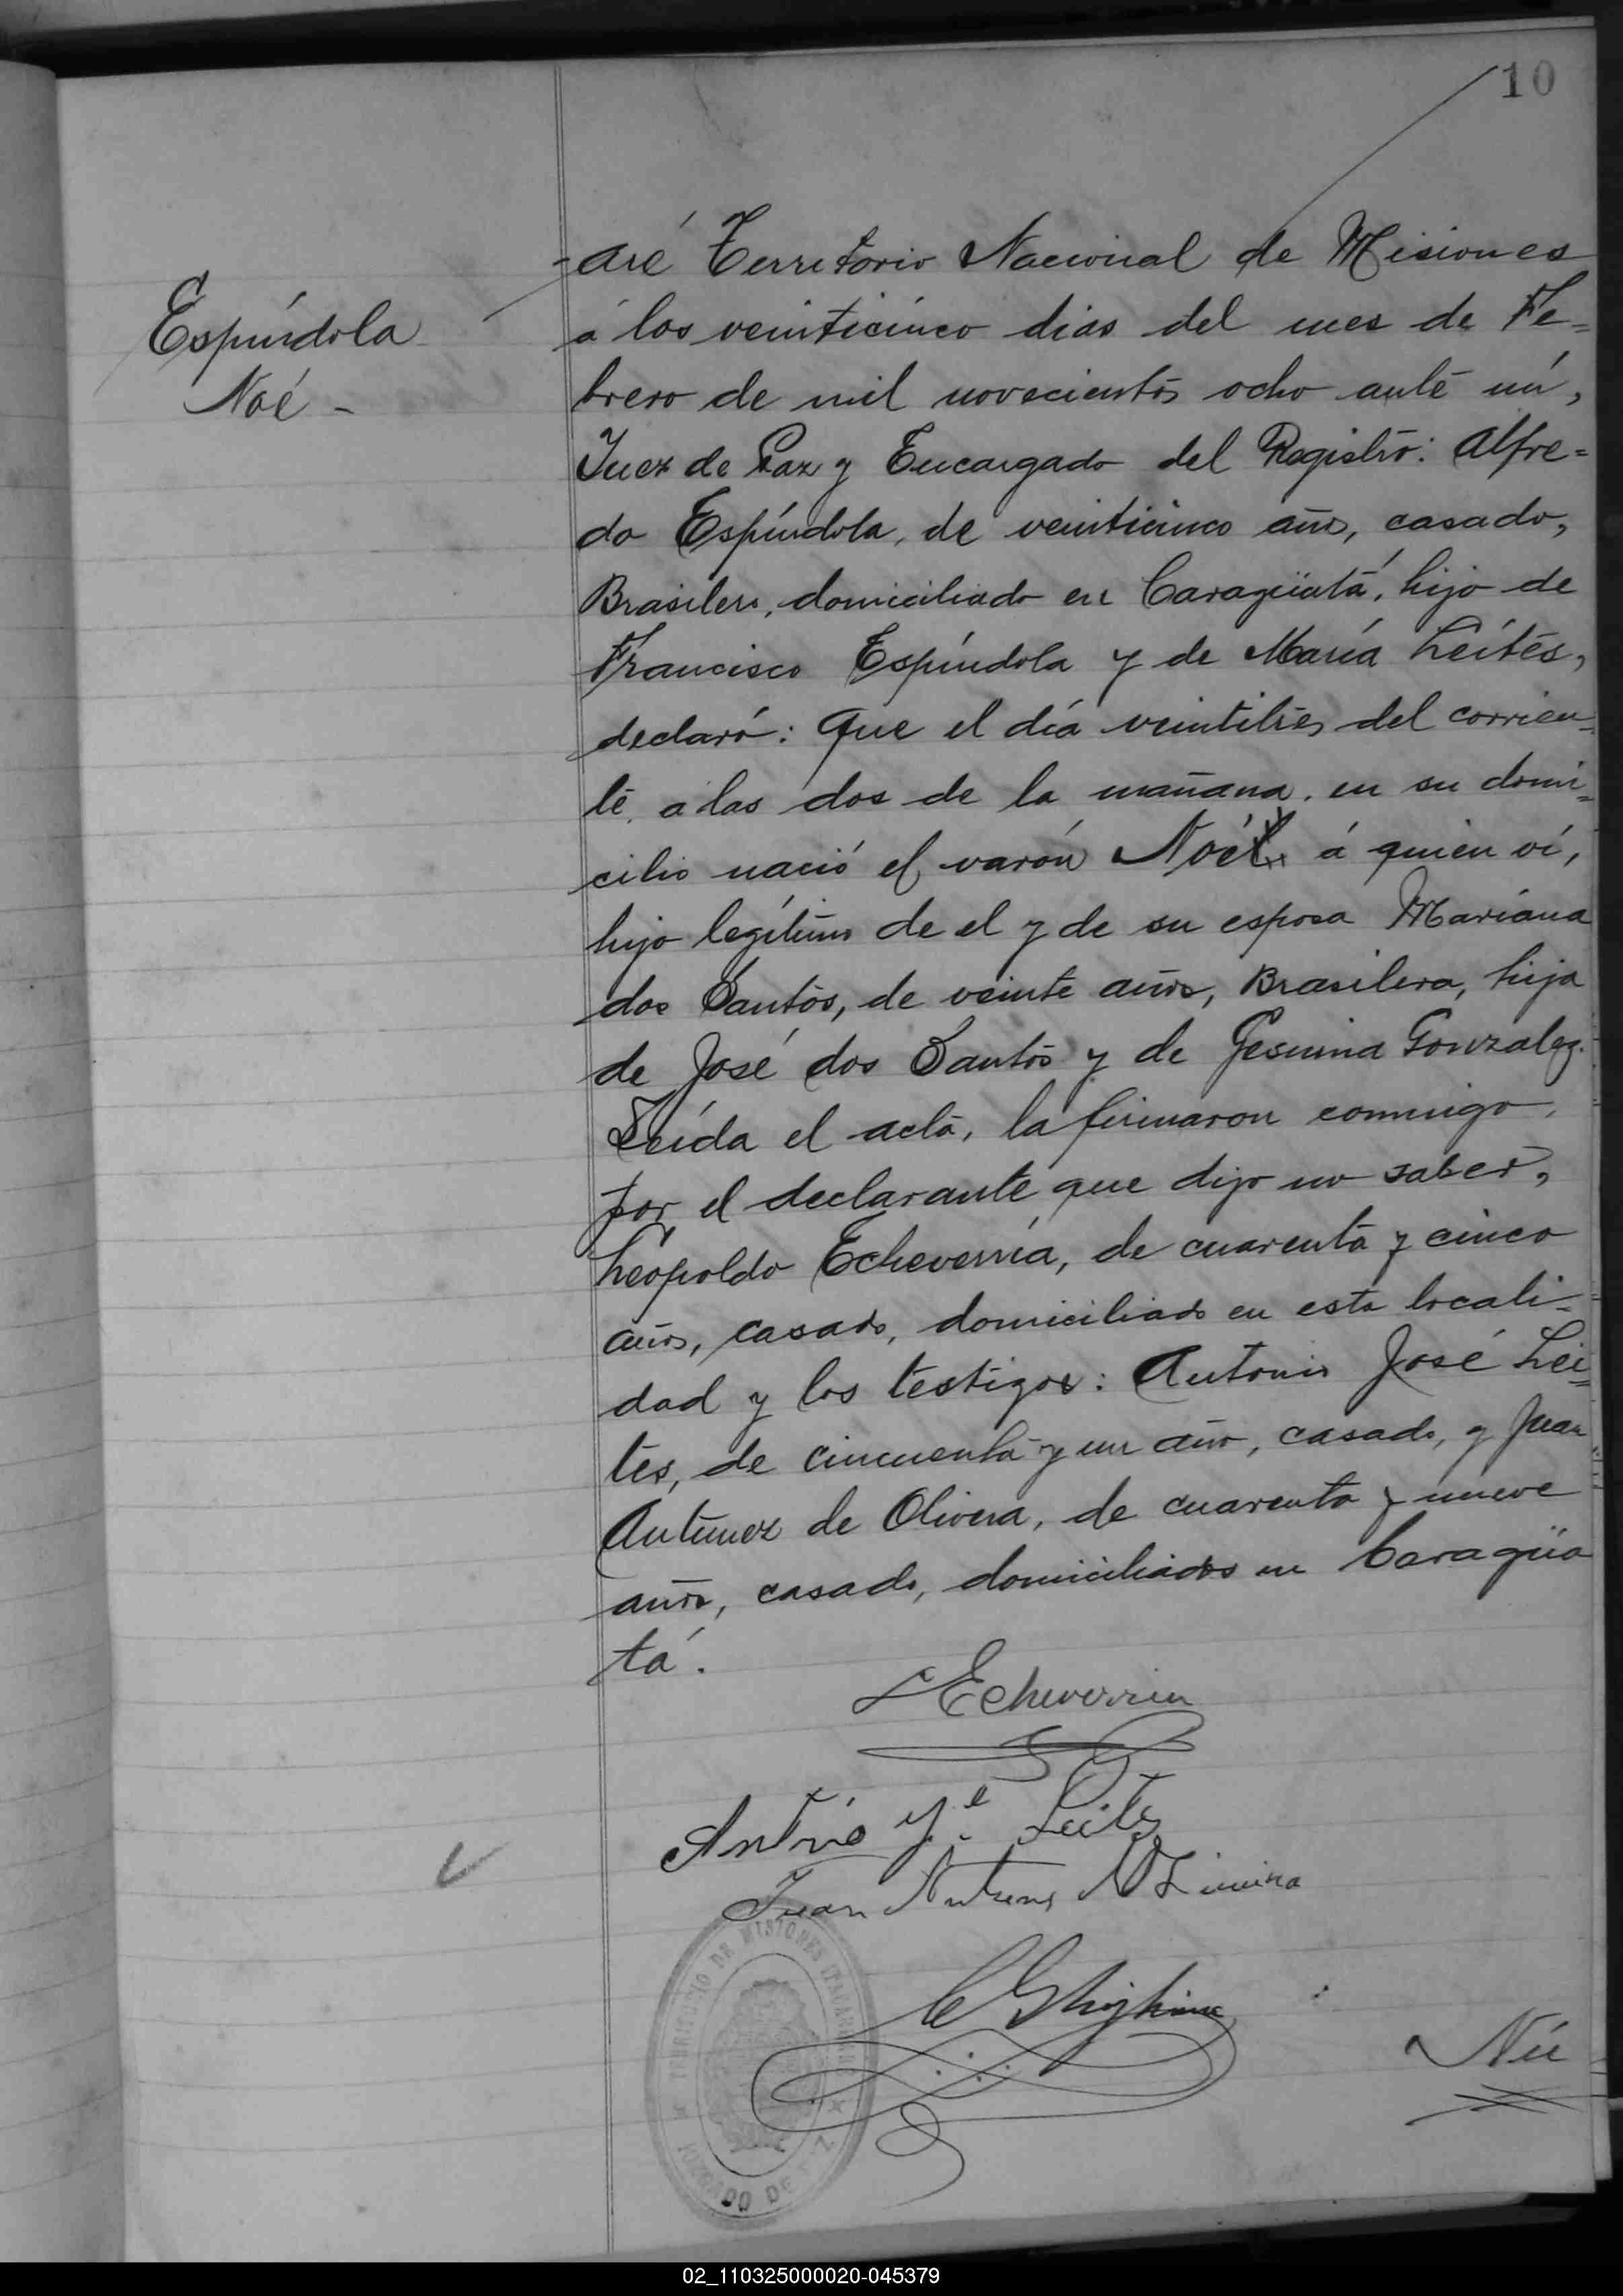 10
Espíndola
Noé -
-aré Territorio Nacional de Misiones
á los veinticinco dias del mes de Fe=
brero de mil novecientos ocho ante mí,
Juez de Paz y Encargado del Registro: Alfre=
do Espíndola, de veinticinco años, casado,
Brasilero, domiciliado en Caragüatá, hijo de
Francisco Espíndola y de María Leites,
declaró: Que el día veintitres del corrien=
te, a las dos de la mañana, en su domi=
cilio nació el varón Noé á quien ví,
hijo legítimo de el y de su esposa Mariana
dos Santos, de veinte años, Brasilera, hija
de José dos Santos y de Gesuina Gonzalez.
Leída el acta, la firmaron conmigo,
por el declarante que dijo no saber,
Leopoldo Echeverría, de cuarenta y cinco
años, casado, domiciliado en esta locali=
dad y los testigos: Antonio José Lei=
tes, de cincuenta y un año, casado, y Juan
Antunez de Olivera, de cuarenta y nueve
años, casado, domiciliados en Caragüa
tá.
L Echeverria
Antnio Je. Leites
Juan
TERRITORIO DE MISIONES
JUZGADO DE PAZ
02_110325000020-045379